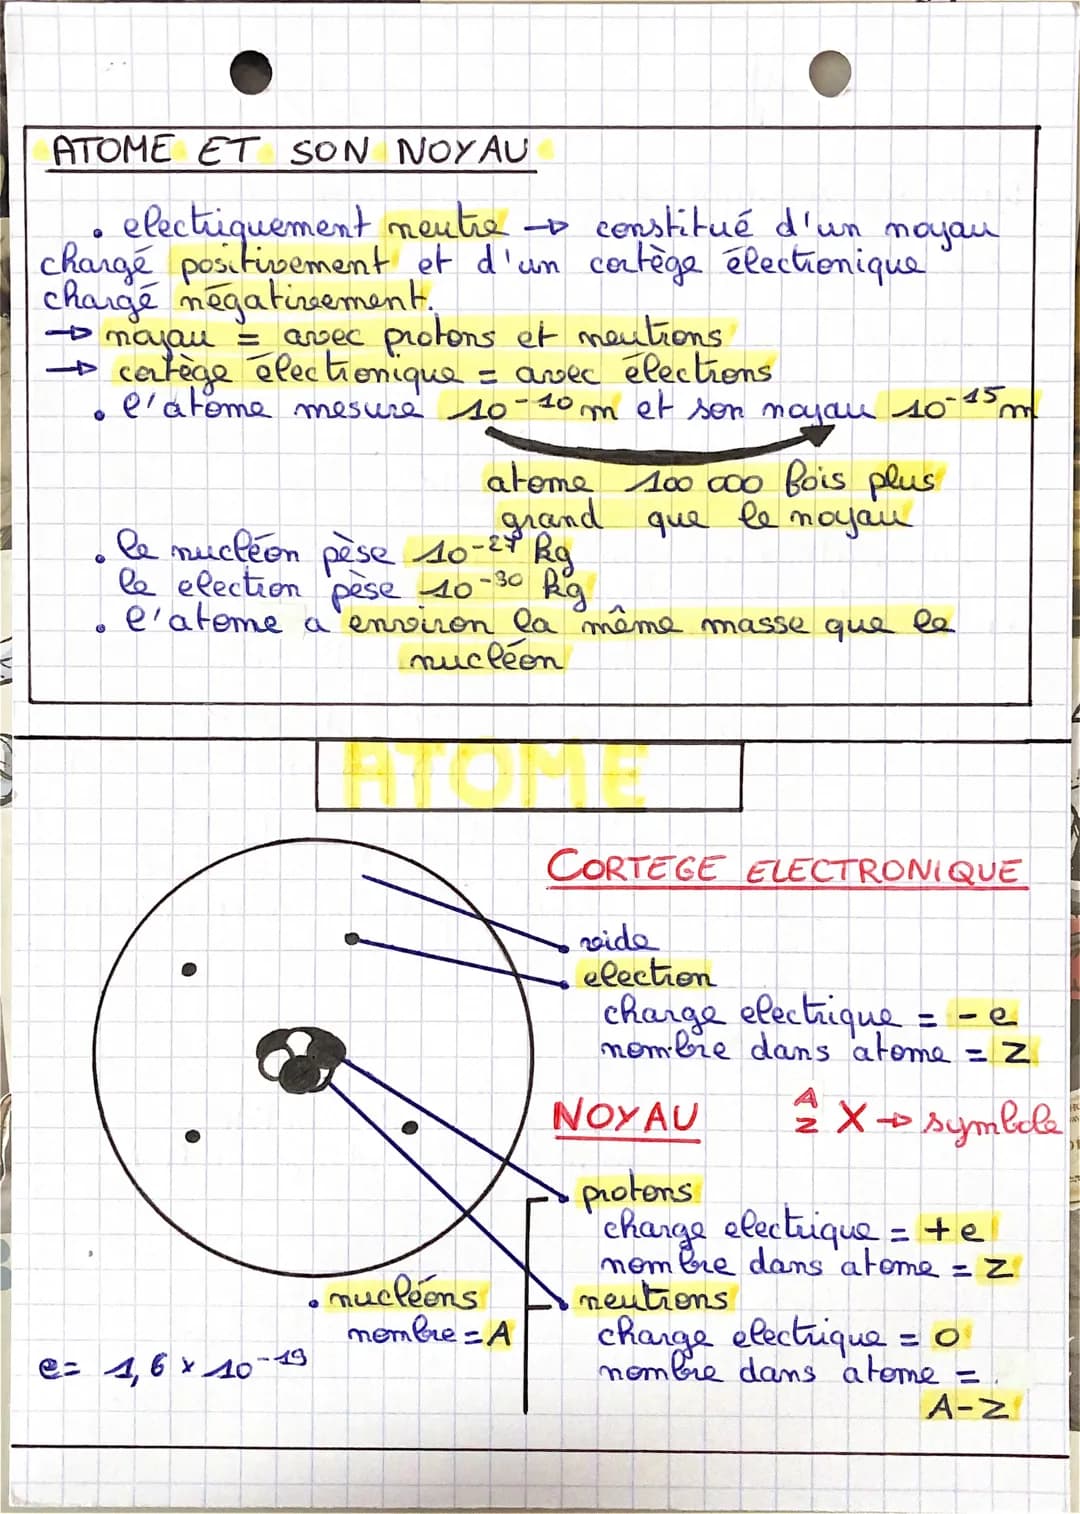 ATOME ET SON NOYAU
• electriquement neutre → constitué d'un noyau
chargé positivement et d'un cortège électronique
chargé négativement.
→ noyau = avec protons et neutrons
→ cortège électronique = avec électrons
• l'atome mesure 10⁻¹⁰ m et son noyau 10⁻¹⁵ m
atome 100 000 fois plus
grand que le noyau
• le nucléon pèse 10⁻²⁷ kg
le electron pèse 10⁻³⁰ kg
• l'atome a environ la même masse que le
nucléon
ATOME
CORTEGE ELECTRONIQUE
vide
electron
charge electrique = -e
nombre dans atome = Z
NOYAU
A Z X → symbole
protons
charge electrique = +e
nombre dans atome = Z
• nucléons
nombre = A
neutrons
charge electrique = 0
nombre dans atome =
A-Z
e= 1,6 x 10⁻¹⁹